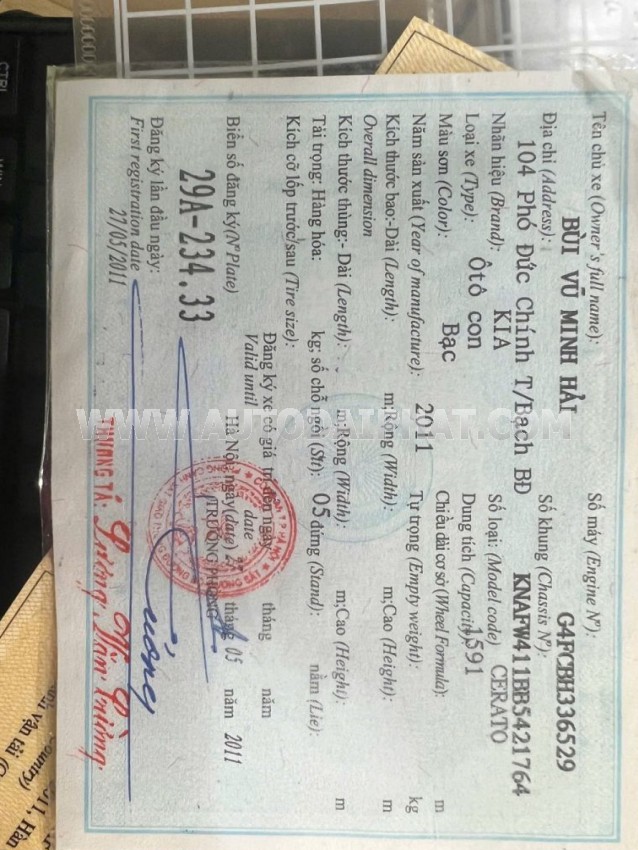 Tên chủ xe (Owner's full name):
Số máy (Engine N°):
BÙI VŨ MINH HẢI
G4FCBH336529
Địa chỉ (Address):
Số khung (Chassis N°):
104 Phó Đức Chính T/Bạch BĐ
KNAFW411BB5421764
Nhãn hiệu (Brand): KIA
Số loại: (Model code) CERATO
Loại xe (Type): Ôtô con
Dung tích (Capacity): 1591
Màu sơn (Color): Bạc
Chiều dài cơ sở (Wheel Formula): m
Năm sản xuất (Year of manufacture): 2011
Tự trọng (Empty weight): kg
Kích thước bao:-Dài (Length): m;Rộng (Width): m;Cao (Height): m
Overall dimension
Kích thước thùng:- Dài (Length): m;Rộng (Width): m;Cao (Height): m
Tải trọng: Hàng hóa: kg; số chỗ ngồi (Sit): 05 đứng (Stand): nằm (Lie):
Kích cỡ lốp trước/sau (Tire size):
Đăng ký xe có giá trị đến ngày tháng năm
Valid until date
Biển số đăng ký(N°Plate)
Hà Nội, ngày(date) 27 tháng 05 năm 2011
29A-234.33
TRƯỞNG PHÒNG
Đăng ký lần đầu ngày:
First registration date
27/05/2011
THƯỢNG TÁ:
WWW.AUTODAIPHAT.COM
CTRL